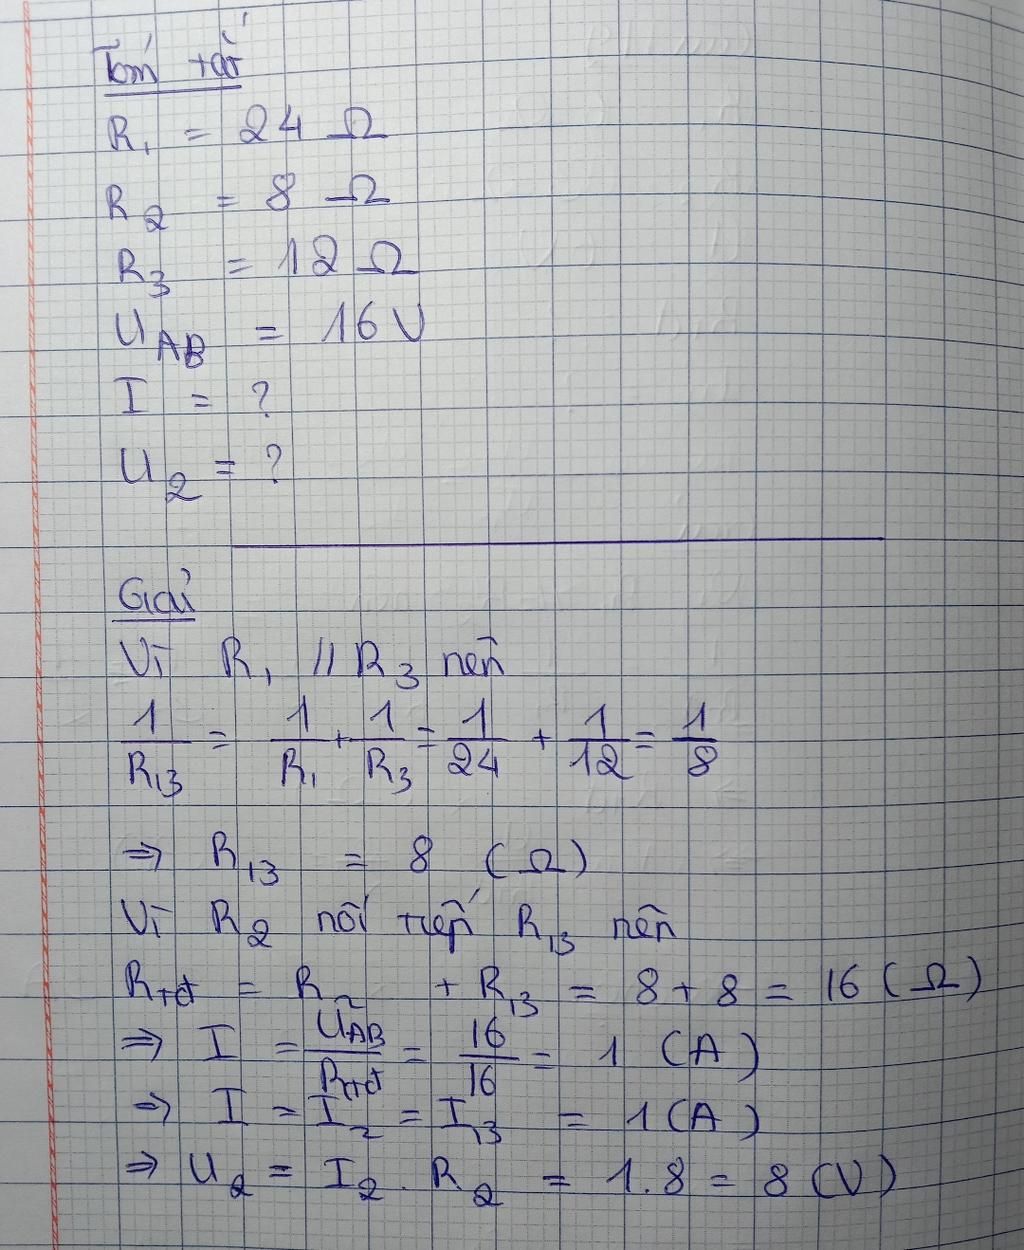 Tóm tắt
R₁ = 24 Ω
R₂ = 8 Ω
R₃ = 12 Ω
U_AB = 16 V
I = ?
U₂ = ?
Giải
Vì R₁ // R₃ nên
1/R₁₃ = 1/R₁ + 1/R₃ = 1/24 + 1/12 = 1/8
⇒ R₁₃ = 8 (Ω)
Vì R₂ nối tiếp R₁₃ nên
R_tđ = R₂ + R₁₃ = 8 + 8 = 16 (Ω)
⇒ I = U_AB/R_tđ = 16/16 = 1 (A)
⇒ I = I₂ = I₁₃ = 1 (A)
⇒ U₂ = I₂ . R₂ = 1.8 = 8 (V)